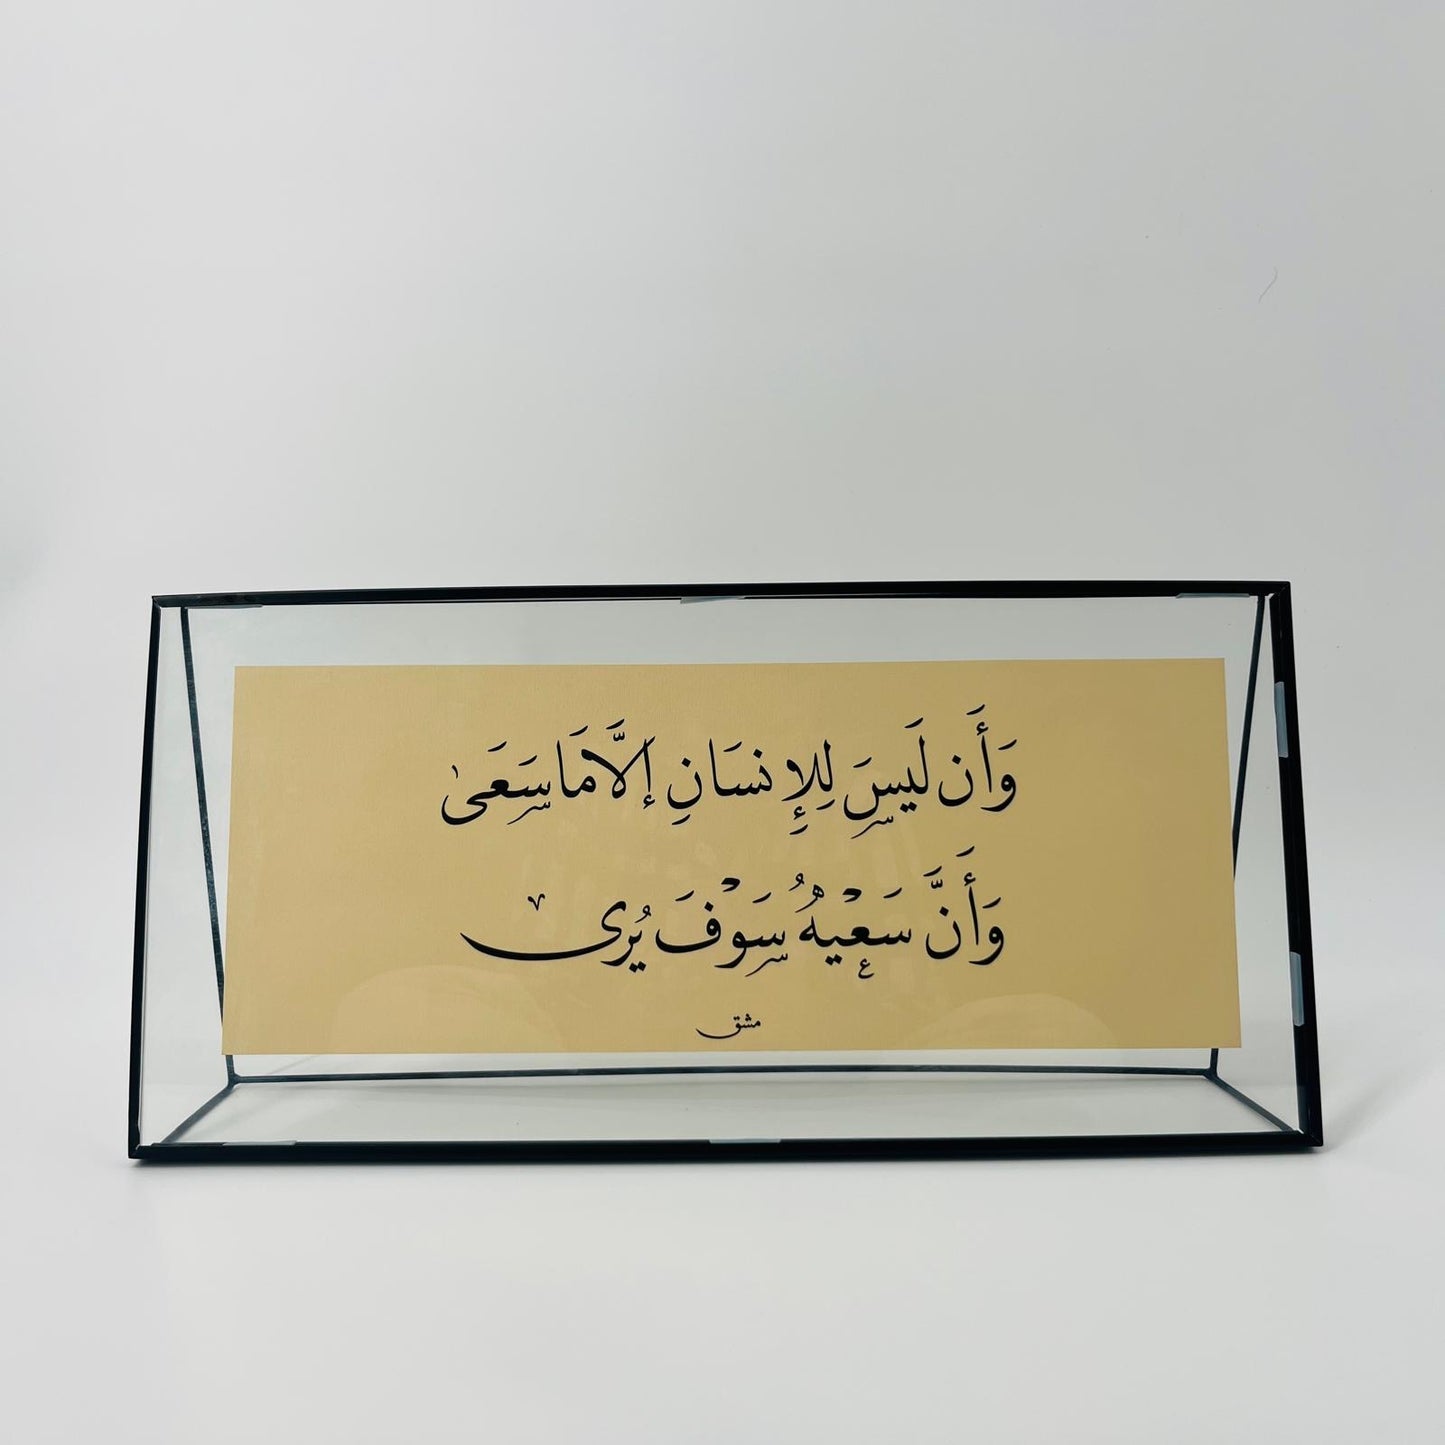 وَأَن لَيسَ لِلإِنسَانِ إلَّا مَا سَعَىٰ
وَأَنَّ سَعْيَهُ سَوْفَ يُرى
مشق